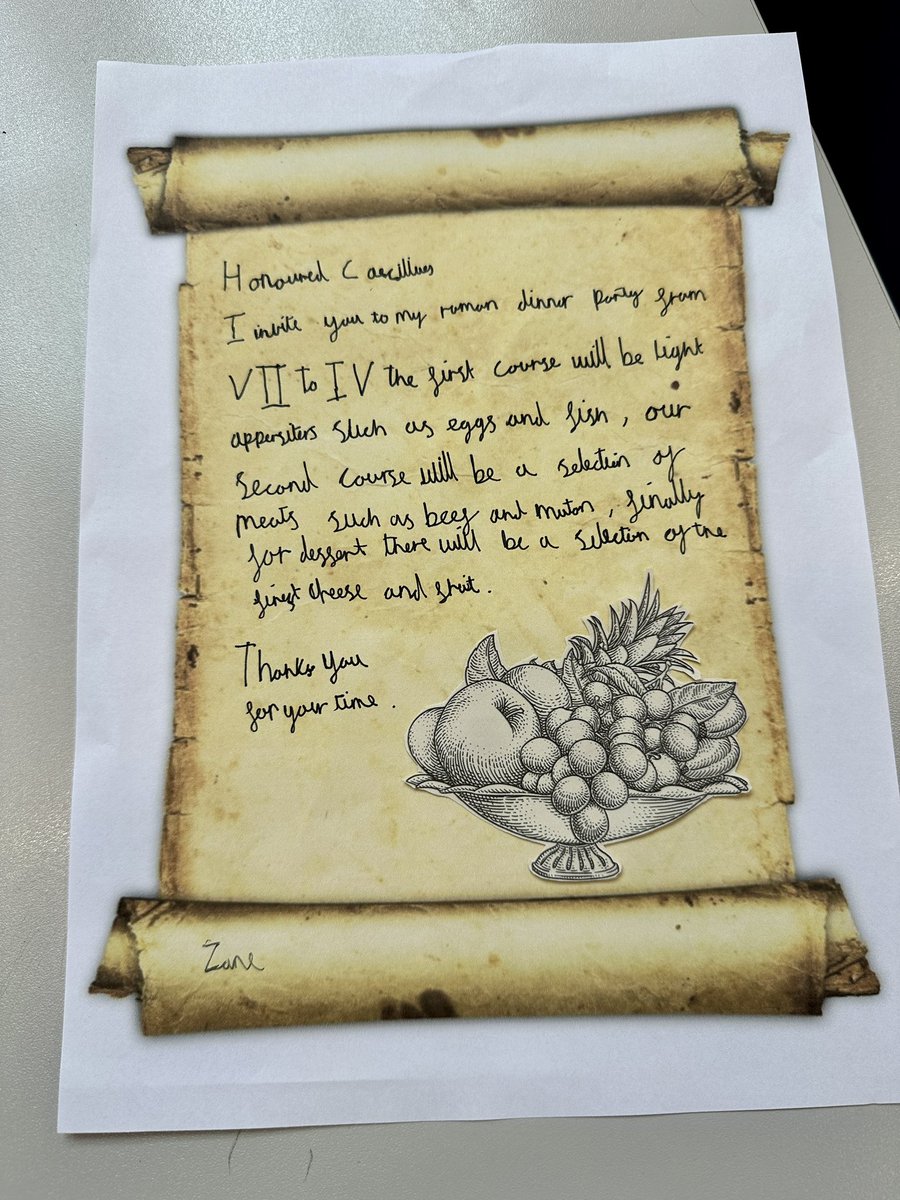 Honoured Caecillius
I invite you to my roman dinner party from
VII to IV the first course will be light
appersiters such as eggs and fish, our
second course will be a selection of
meats such as beef and muton, finally
for dessert there will be a selection of the
finest cheese and fruit.
Thanks you
for your time.
Zane